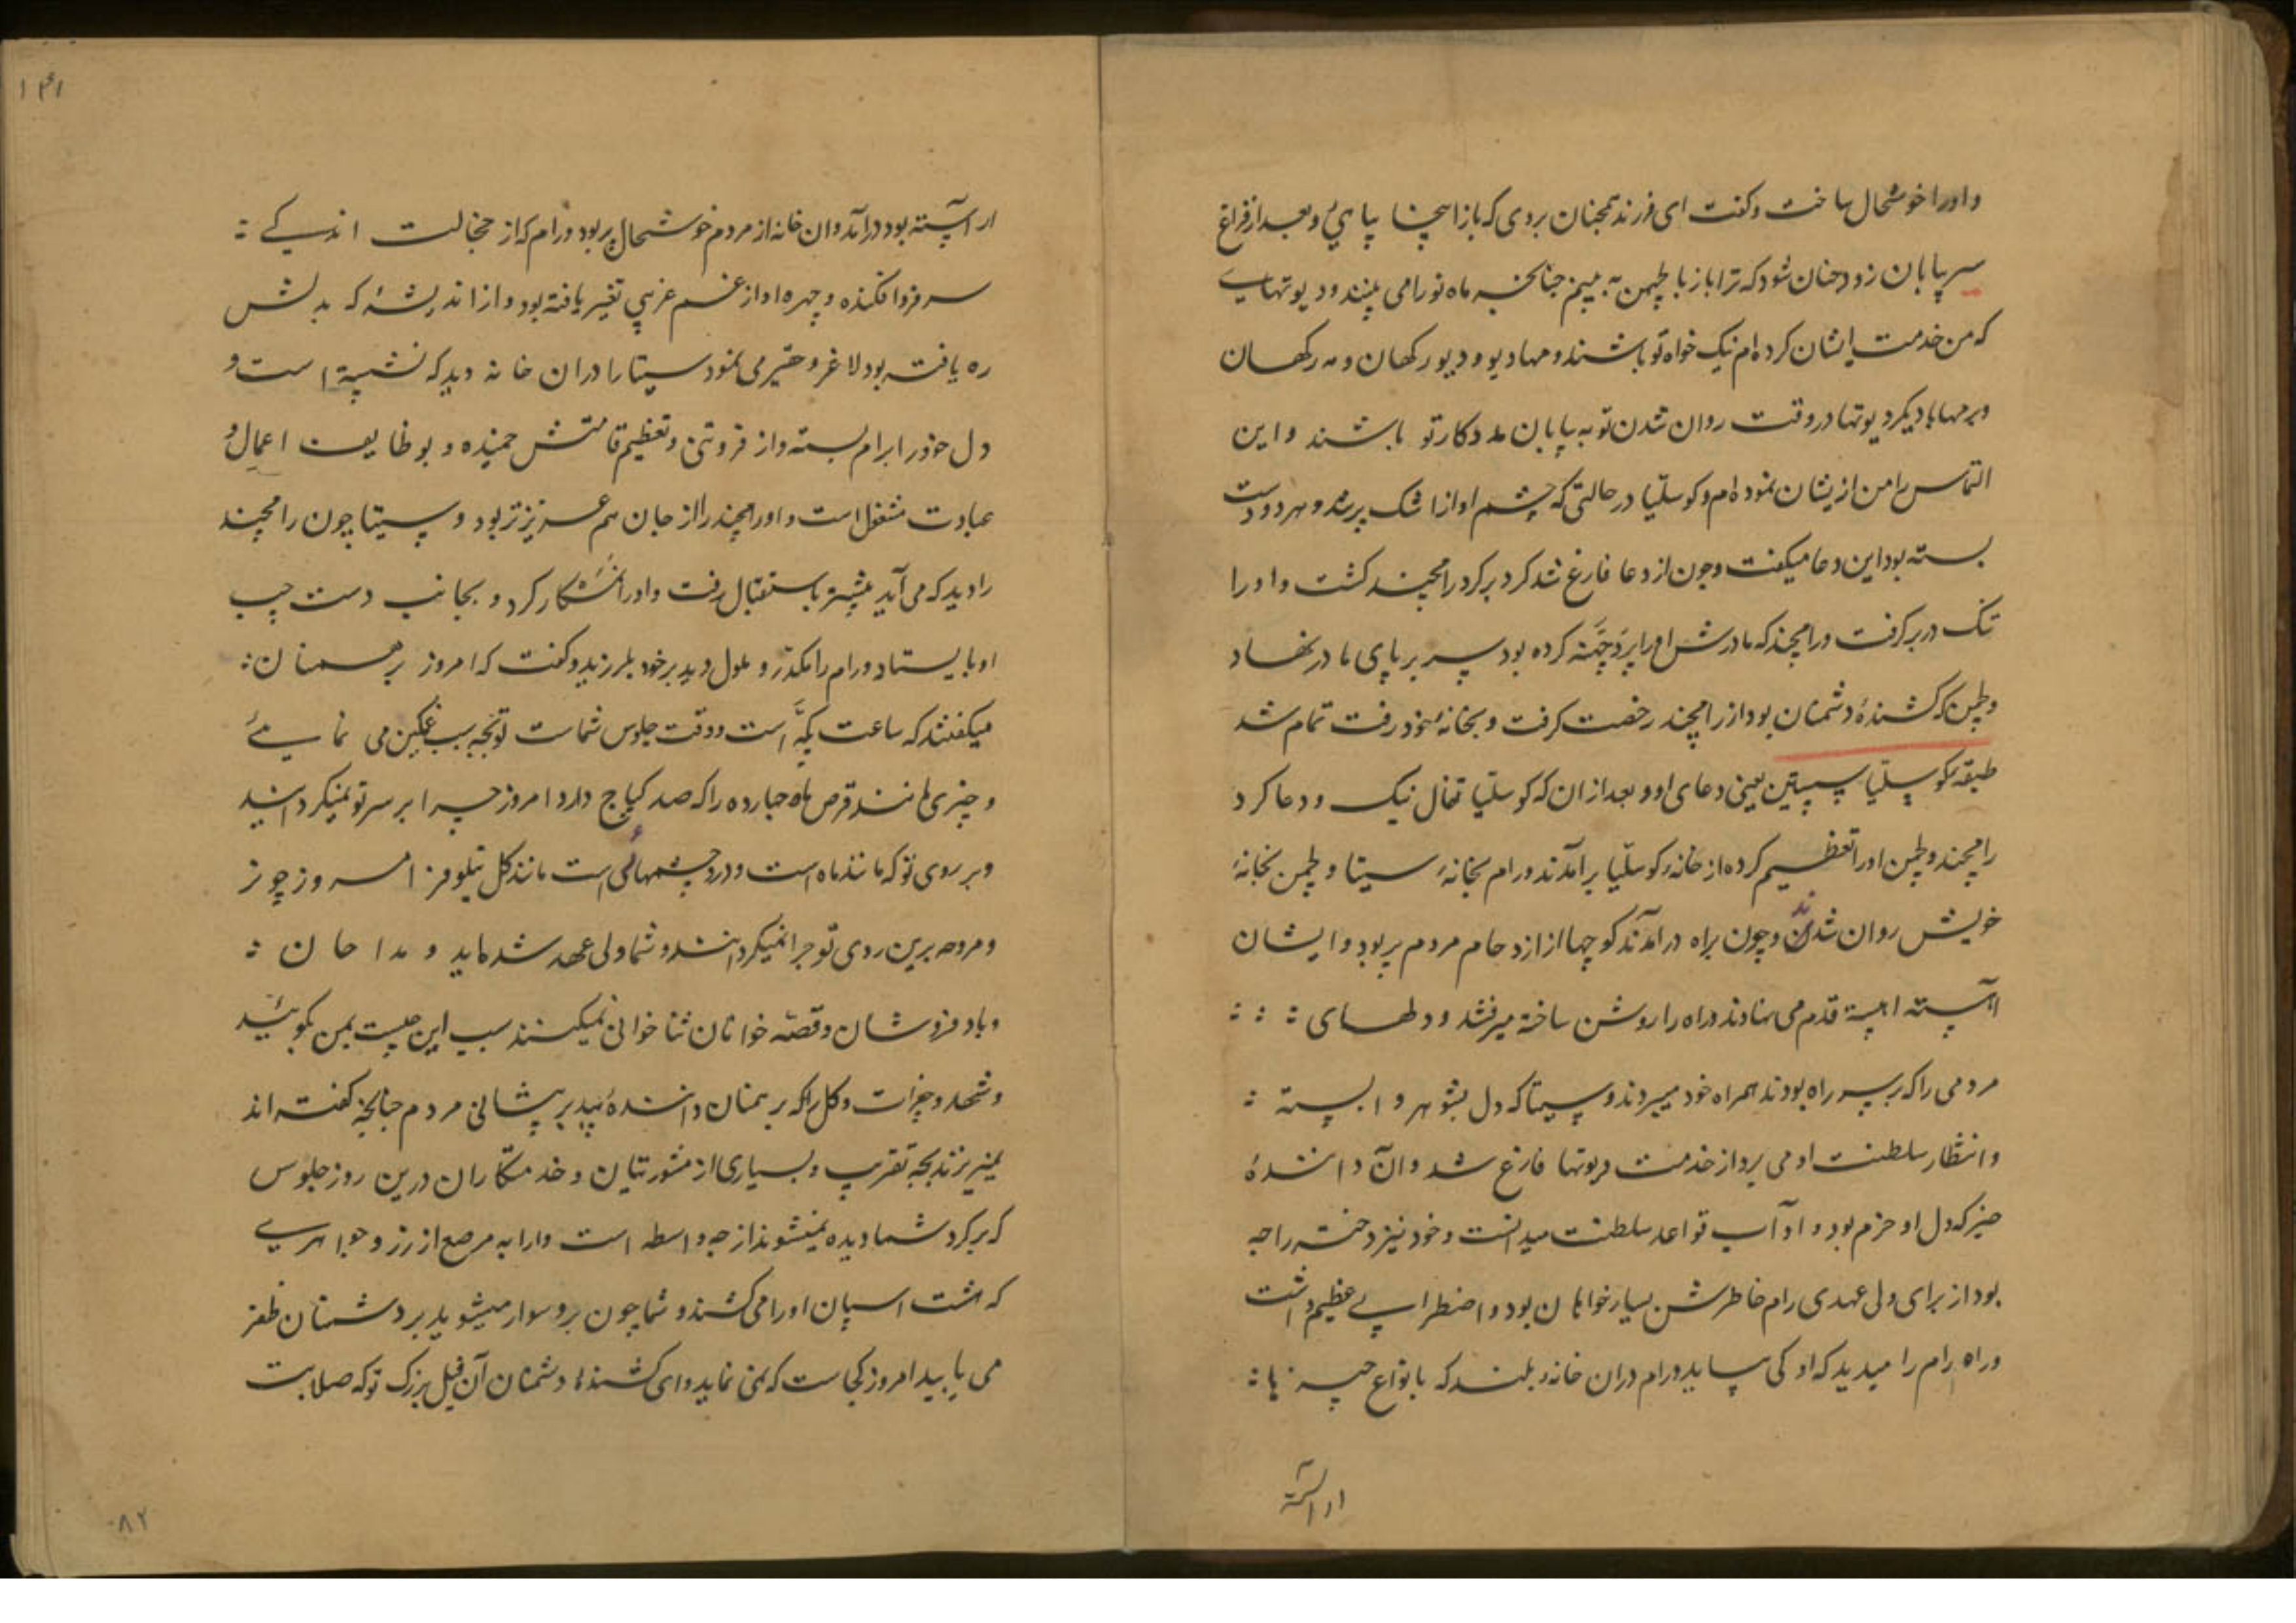 و اورا خوشحال ساخت و کفت ای فرزند همچنان بروی که باز اینجا بیایی و بعد از فراغ
سیر بیابان زود چنان شود که ترا باز با لچهمن به بینم چنانچه ماه نو را می بینند و دیوتهای
که من خدمت ایشان کرده‌ام نیک خواه تو باشند و مهادیو و دیو رکهان و مه رکهان
و برمها با دیکر دیوتها در وقت روان شدن تو به بیابان مددکار تو باشند و این
التماس را من ازیشان نموده‌ام و کوسلیا در حالتی که چشم او از اشک پر شد و هر دو دست
بسته بود این دعا میکفت و چون از دعا فارغ شد کرد بر کرد رامچند کشت و او را
تنک در بر کرفت و رامچند که مادرش او را پردچهنه کرده بود سر بر پای مادر نهاد
و لچهمن که کشندهٔ دشمنان بود از رامچند رخصت کرفت و بخانهٔ خود رفت تمام شد
طبقه کوسلیا سبستین یعنی دعای او و بعد از ان که کوسلیا تفال نیک و دعا کرد
رامچند و لچمن او را تعظیم کرده از خانه کوسلیا برآمدند و رام بخانهٔ سیتا و لچمن بخانهٔ
خویش روان شدند و چون براه درآمدند کوچها از ازدحام مردم پر بود و ایشان
آهسته اهسته قدم می نهادند و راه را روشن ساخته میرفتند و دلهای
مردمی را که بر سر راه بودند همراه خود میبردند و سیتا که دل بشوهر وابسته
و انتظار سلطنت او می برد از خدمت دیوتها فارغ شد و آن دانندهٔ
خیر که دل او خرم بود و او آب قواعد سلطنت میدانست و خود نیز دختر راجه
بود از برای ولی عهدی رام خاطرش بسیار خواهان بود و اضطرابی عظیم داشت
و راه رام را میدید که او کی بیاید و رام دران خانه بلند که بانواع چیزها
اراسته
۱۴۱
اراسته بود درآمد و ان خانه از مردم خوشحال پر بود و رام که از خجالت اندکی
سر فرو افکنده و چهره او از غم غریبی تغییر یافته بود و از اندیشهٔ که بدلش
ره یافته بود لاغر و حقیر می نمود سیتا را دران خانه دید که نشسته است و
دل خود را برام بسته و از فروتنی و تعظیم قامتش خمیده و بوظایف اعمال و
عبادت مشغول است و او رامچند را از جان هم عزیزتر بود و سیتا چون رامچند
را دید که می آید پیشتر باستقبال رفت و او را نمسکار کرد و بجانب دست چپ
او بایستاد و رام را مکدر و ملول دید بر خود بلرزید و کفت که امروز برهمنان
میکفتند که ساعت است و وقت جلوس شماست تو بچه سبب غمکین می نمایی
و چتری مانند قرص ماه چهارده را که صد دارد امروز چرا بر سر تو نمیکردانید
و بر روی تو که مانند ماه است و در چشمهای است مانند کل نیلوفر امروز چون
و مروحه برین روی تو چرا نمیکردانند و شما ولی عهد شده‌اید و مداحان
و بادفروشان و قصه خوانان ثنا خوانی نمیکنند سبب این چیست بمن بکوئید
و شهد و جغرات و کل را که برهمنان دانندهٔ بید بر پیشانی مردم چنانچه کفته اند
نمیریزند بچه تقریب و بسیاری از مشورتیان و خدمتکاران درین روز جلوس
که بر کرد شما دیده نمیشوند از چه واسطه است و ارابه مرصع از زر و جواهری
که هشت اسپان او را می کشند و شما چون برو سوار میشوید بر دشمنان ظفر
می یابید امروز کجاست که نمی نماید و ای کشندهٔ دشمنان آن فیل بزرک تو که صلابت
۸۲